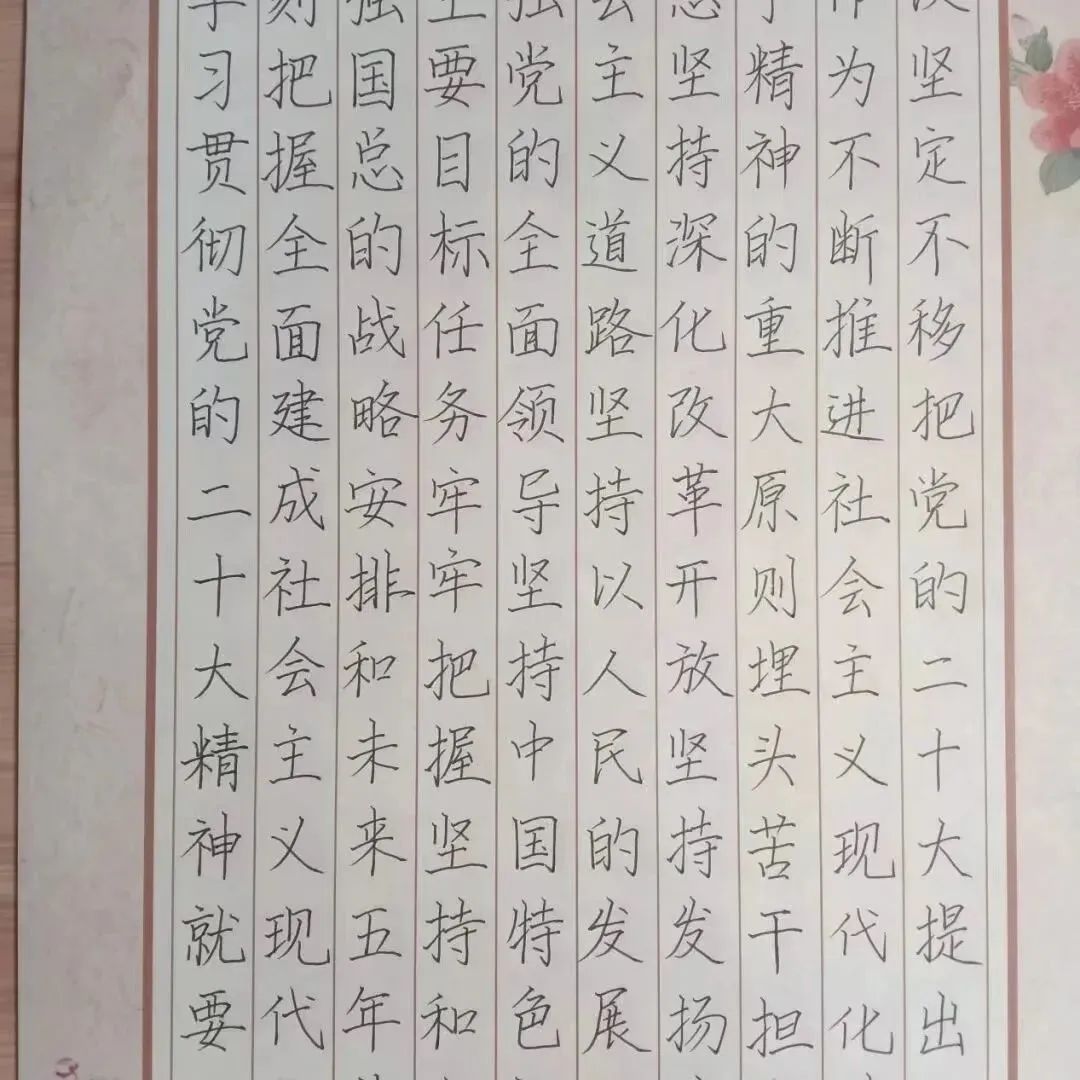 学习贯彻党的二十大精神就要
则把握全面建成社会主义现代
强国总的战略安排和未来五年
主要目标任务牢牢把握坚持和
强党的全面领导坚持中国特色
会主义道路坚持以人民的发展
坚持深化改革开放坚持发扬
精神的重大原则埋头苦干担
作为不断推进社会主义现代化
坚定不移把党的二十大提出